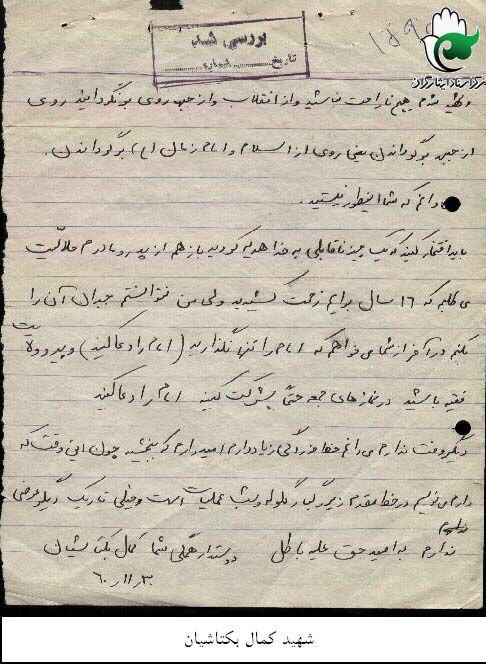 مرکز اسناد ایثارگران
بررسی شد
تاریخ ........ شماره ........
شهید شدم هیچ ناراحت نباشید و از انقلاب و از جبهه روی برنگردانید روی
از جبهه برگرداندن یعنی روی از اسلام و امام زمان (عج) برگرداندن.
می‌دانم که شما اینطور نیستید.
باید افتخار کنید که یک چیز ناقابلی به خدا هدیه کردید باز هم از پدر و مادرم حلالیت
می طلبم که ۱۶ سال برایم زحمت کشیدید ولی من نتوانستم جبران آن را
بکنم در آخر از شما می خواهم که امام را تنها نگذارید (امام را دعا کنید) و پیرو ولایت
فقیه باشید در نمازهای جمعه حتماً شرکت کنید امام را دعا کنید
دیگر وقت ندارم می دانم خط خوردگی زیاد دارم امیدوارم که ببخشید چون این وقت که
دارم می نویسم در خط مقدم زیر رگبار گلوله و شب عملیات است و خیلی تاریک دیگر عرضی
ندارم به امید حق علیه باطل دوستدار همگی شما کمال بکتاشیان
۶۰/۱۱/۳۰
شهید کمال بکتاشیان